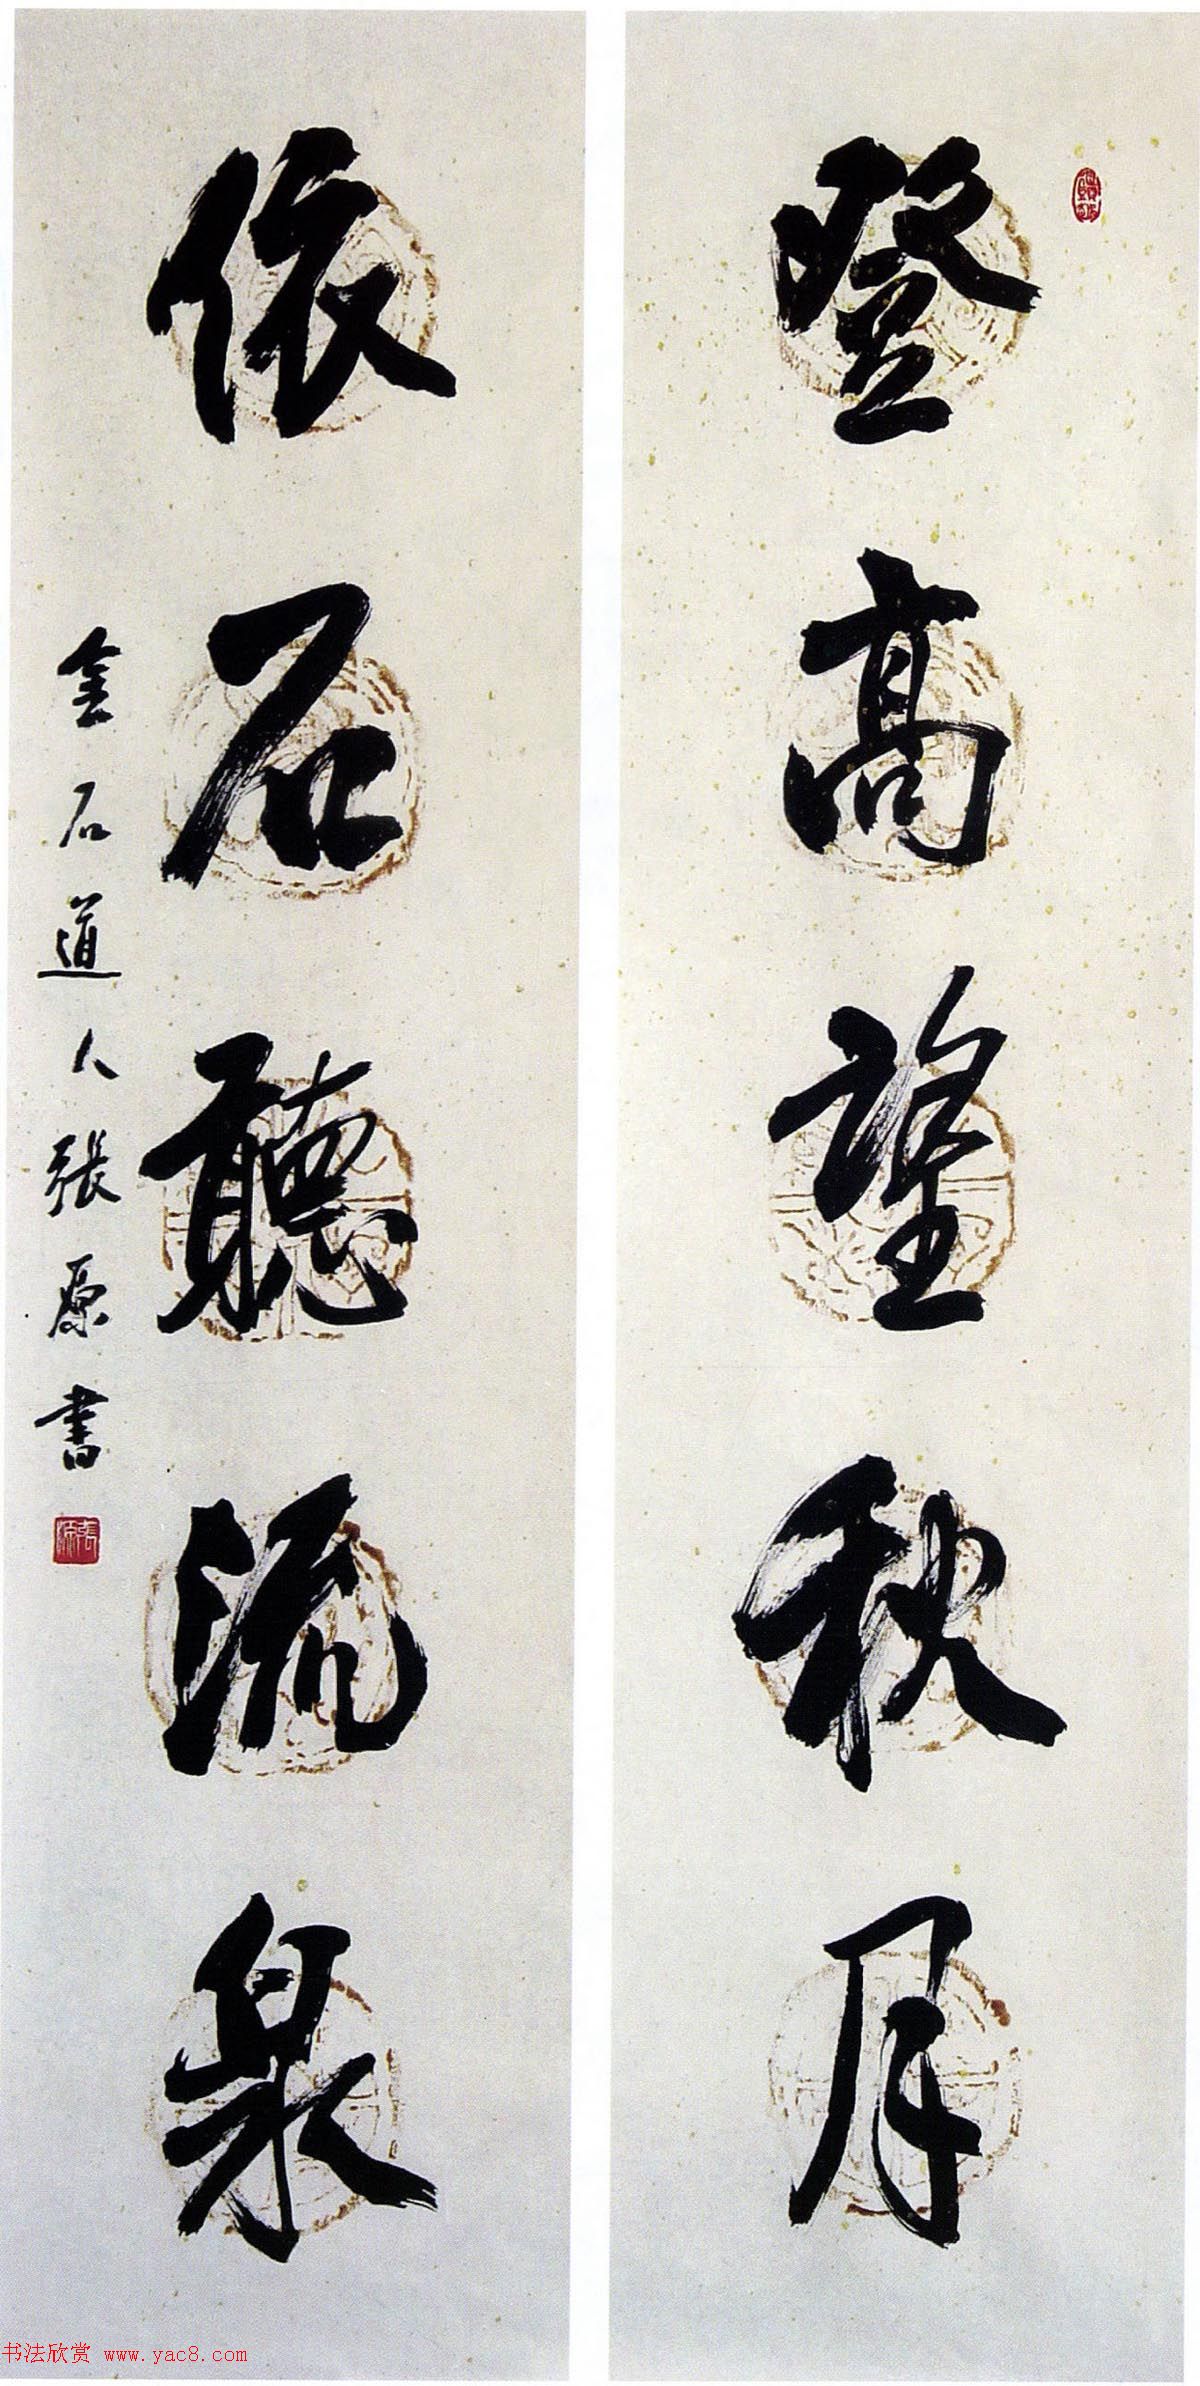 登高望秋月
依石聽流泉
金石道人張原書
張原
书法欣赏 www.yac8.com